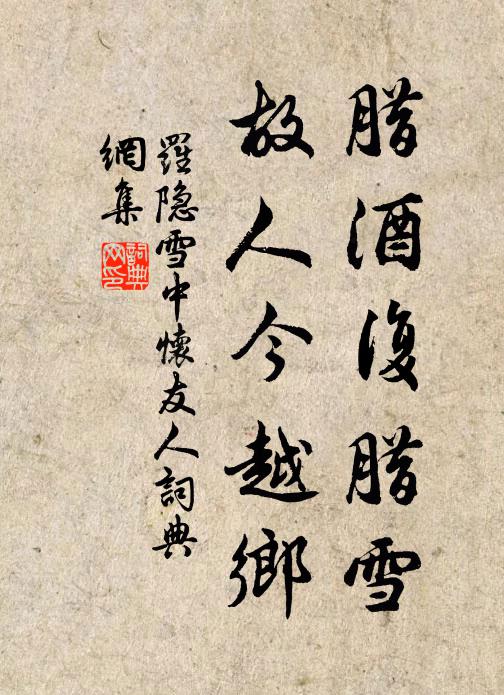 腊酒復腊雪
故人今越鄉
羅隐雪中懷友人詞典
網集
詞典
网印